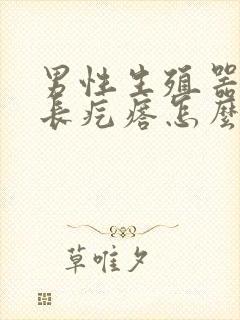 男性生殖器
長疙瘩怎麼
草唯夕